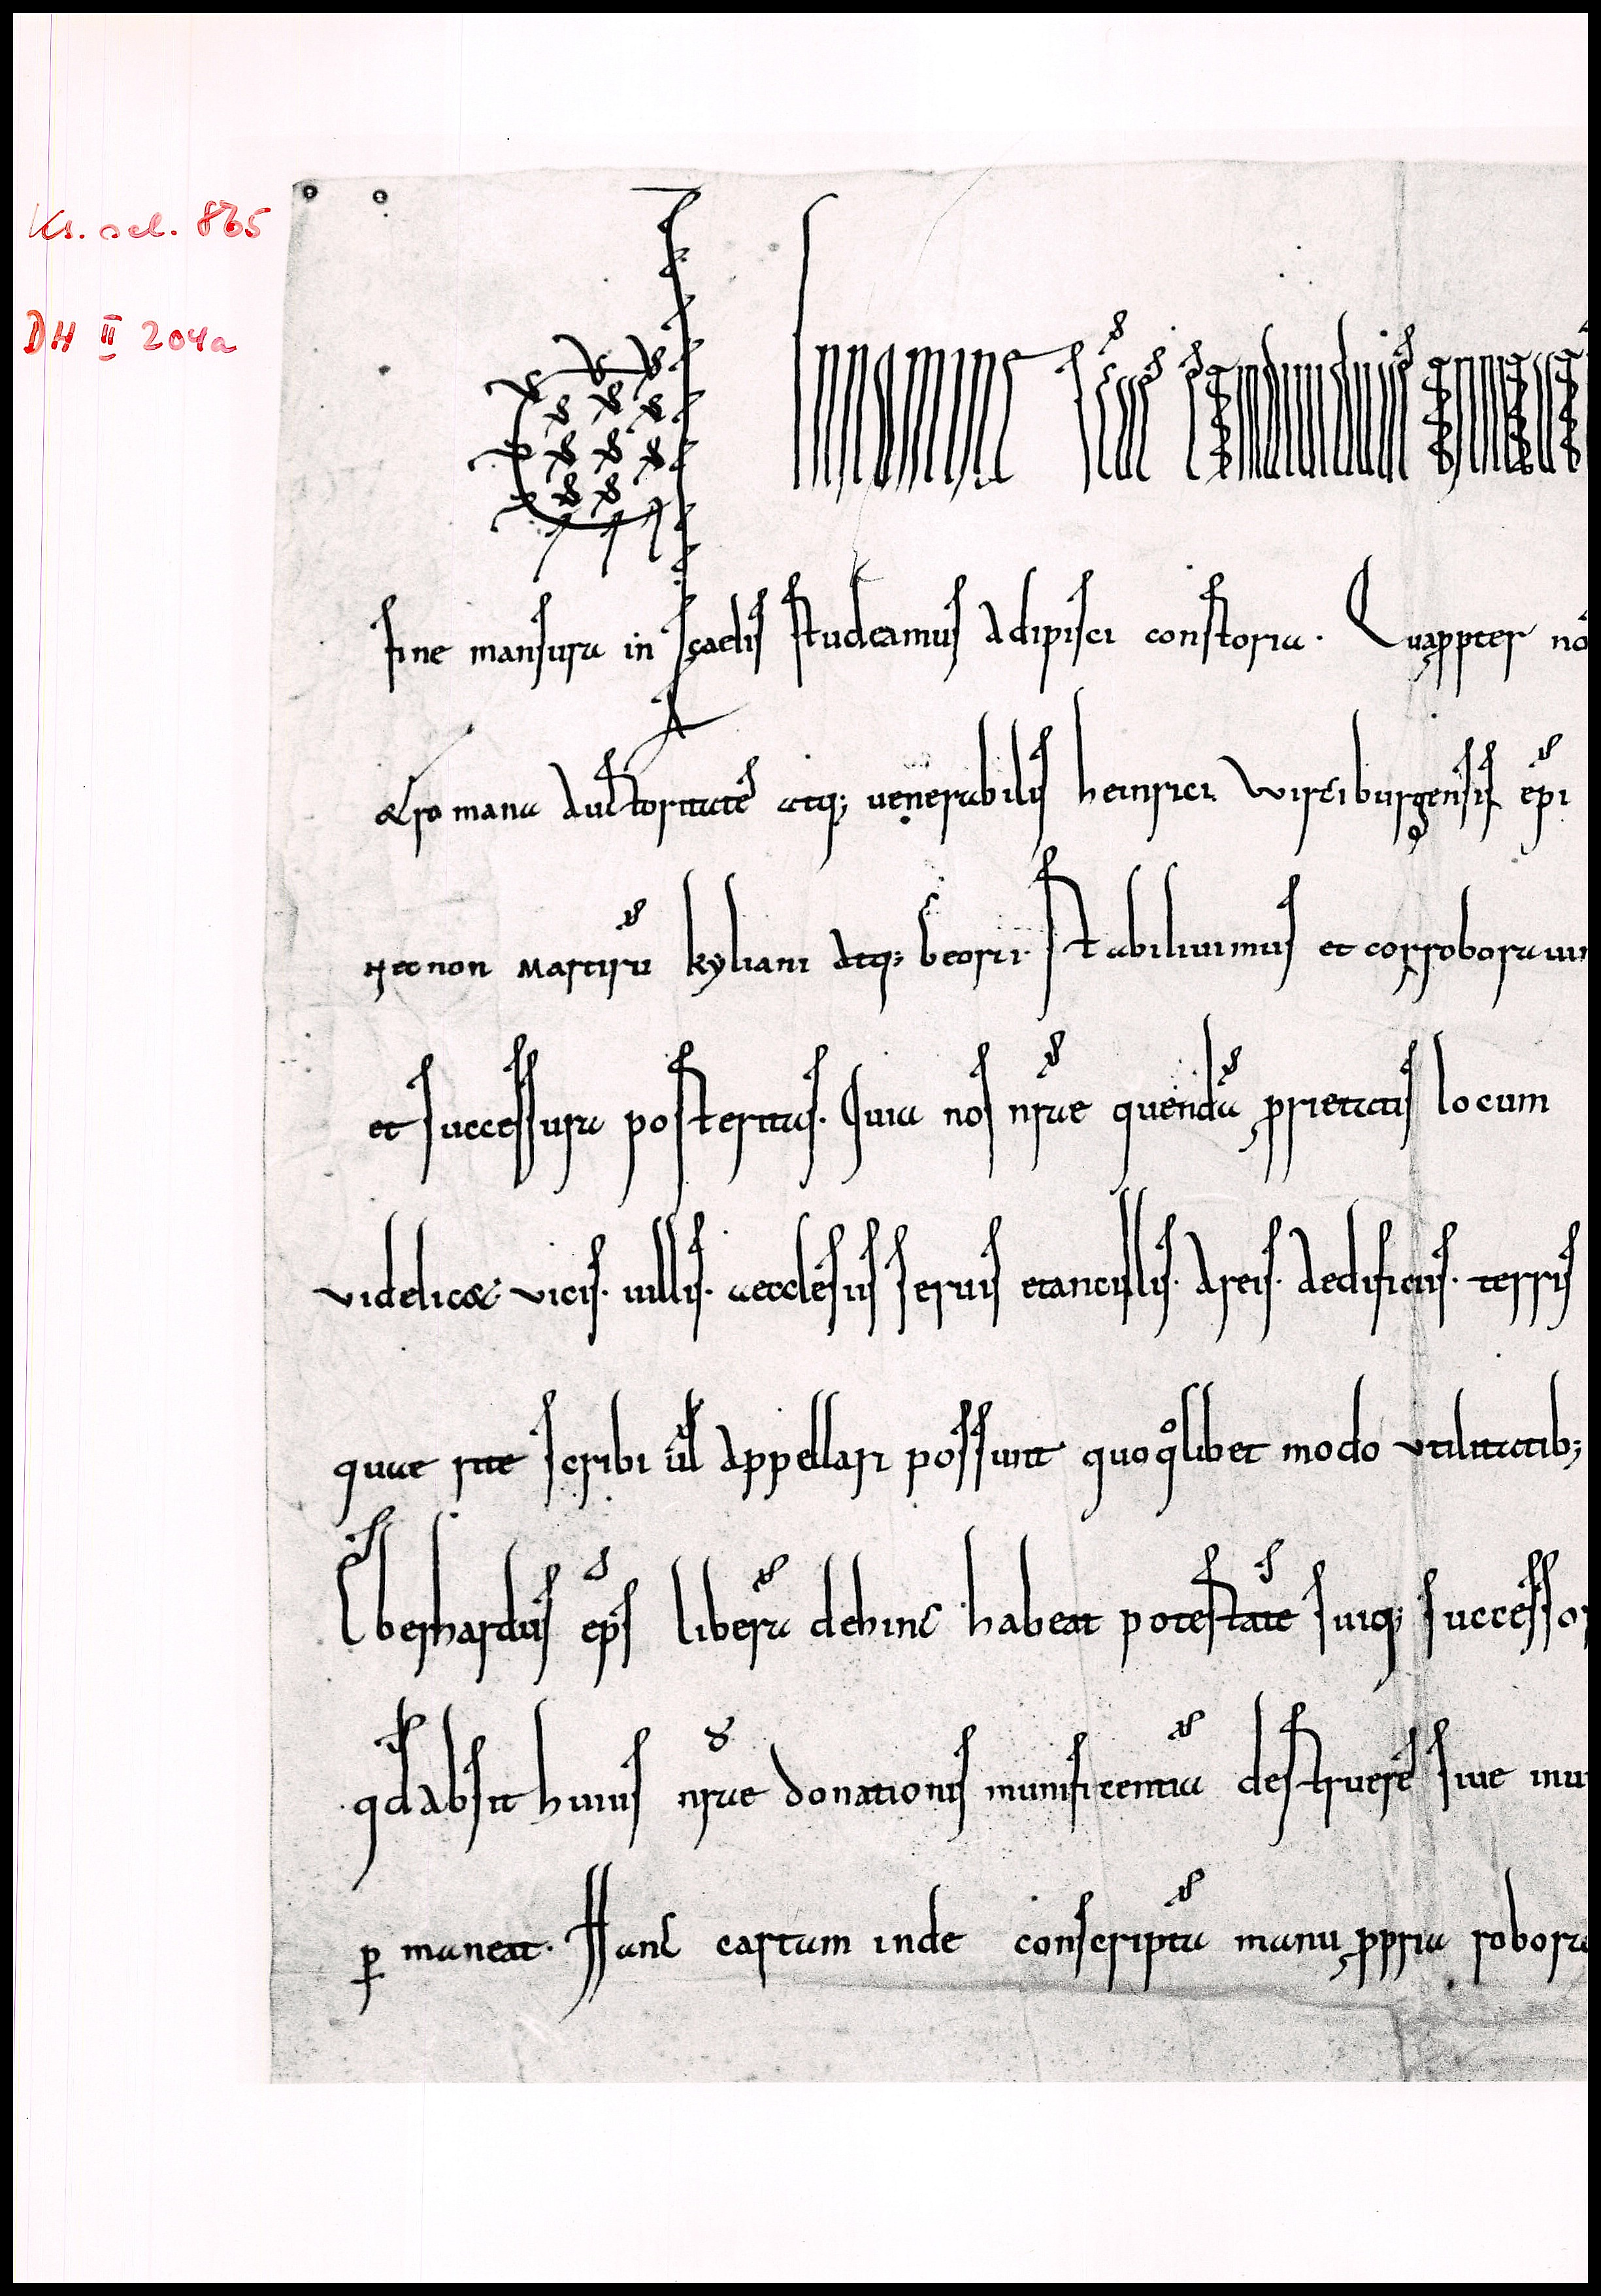 Ks. sel. 865
DH II 204a
In nomine scae et individuae
fine mansura in caelis studeamus adipisci constoria. Quappter no
& romana auctoritate atq; venerabilis heinrici wirciburgensis epi
necnon martiru kyliani atq; beorii stabilivimus et corroboravim
et successura posteritas. Quia nos nrae quenda pprietatis locum
videlic& vicis. villis. aecclesiis servis et ancillis. areis. aedificiis. terris
quae rite scribi ul appellari possunt quoqlibet modo utilitatib;
Eberhardus eps libera dehinc habeat potestate suiq; successor
qd absit huius nrae donationis munificentia destruere sive inu
p maneat. Hanc cartam inde conscripta manu ppria robora